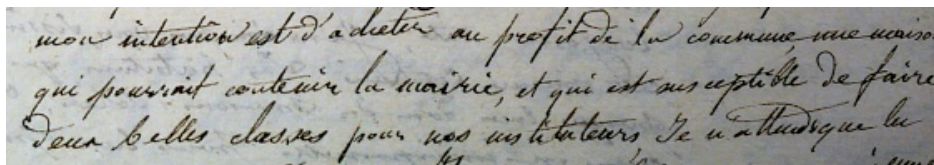 mon intention est d'acheter au profit de la commune une maison
qui pourrait contenir la mairie, et qui est susceptible de faire
deux belles classes pour nos instituteurs, Je n'attends que la